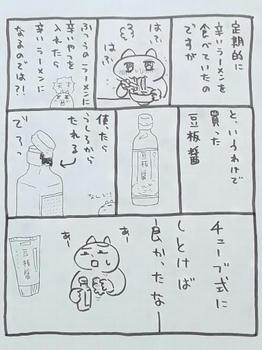 定期的に
辛いラーメンを
食べていたの
ですが
はふ
はふ
ふつうのラーメンに
辛いやつを
入れたら
辛いラーメンに
なるのでは?!
と、いうわけで
買った
豆板醤
豆板醤
使たら
うしろから
たれる
でろっ
なんじ!
チューブ式に
しとけば
良かったなー
あー
あー
豆板醤